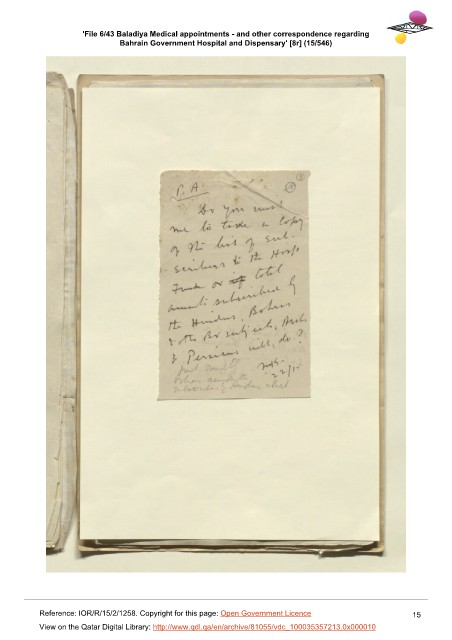 'File 6/43 Baladiya Medical appointments - and other correspondence regarding
Bahrain Government Hospital and Dispensary' [8r] (15/546)
P.A.
Do you want
me to take a copy
of the list of sub-
scribers to the Hosp
Fund or if total
amounts subscribed by
the Hindus, Bohras
& other Br subjects, Arabs
& Persians will do?
22/1
Reference: IOR/R/15/2/1258. Copyright for this page: Open Government Licence
15
View on the Qatar Digital Library: http://www.qdl.qa/en/archive/81055/vdc_100035357213.0x000010